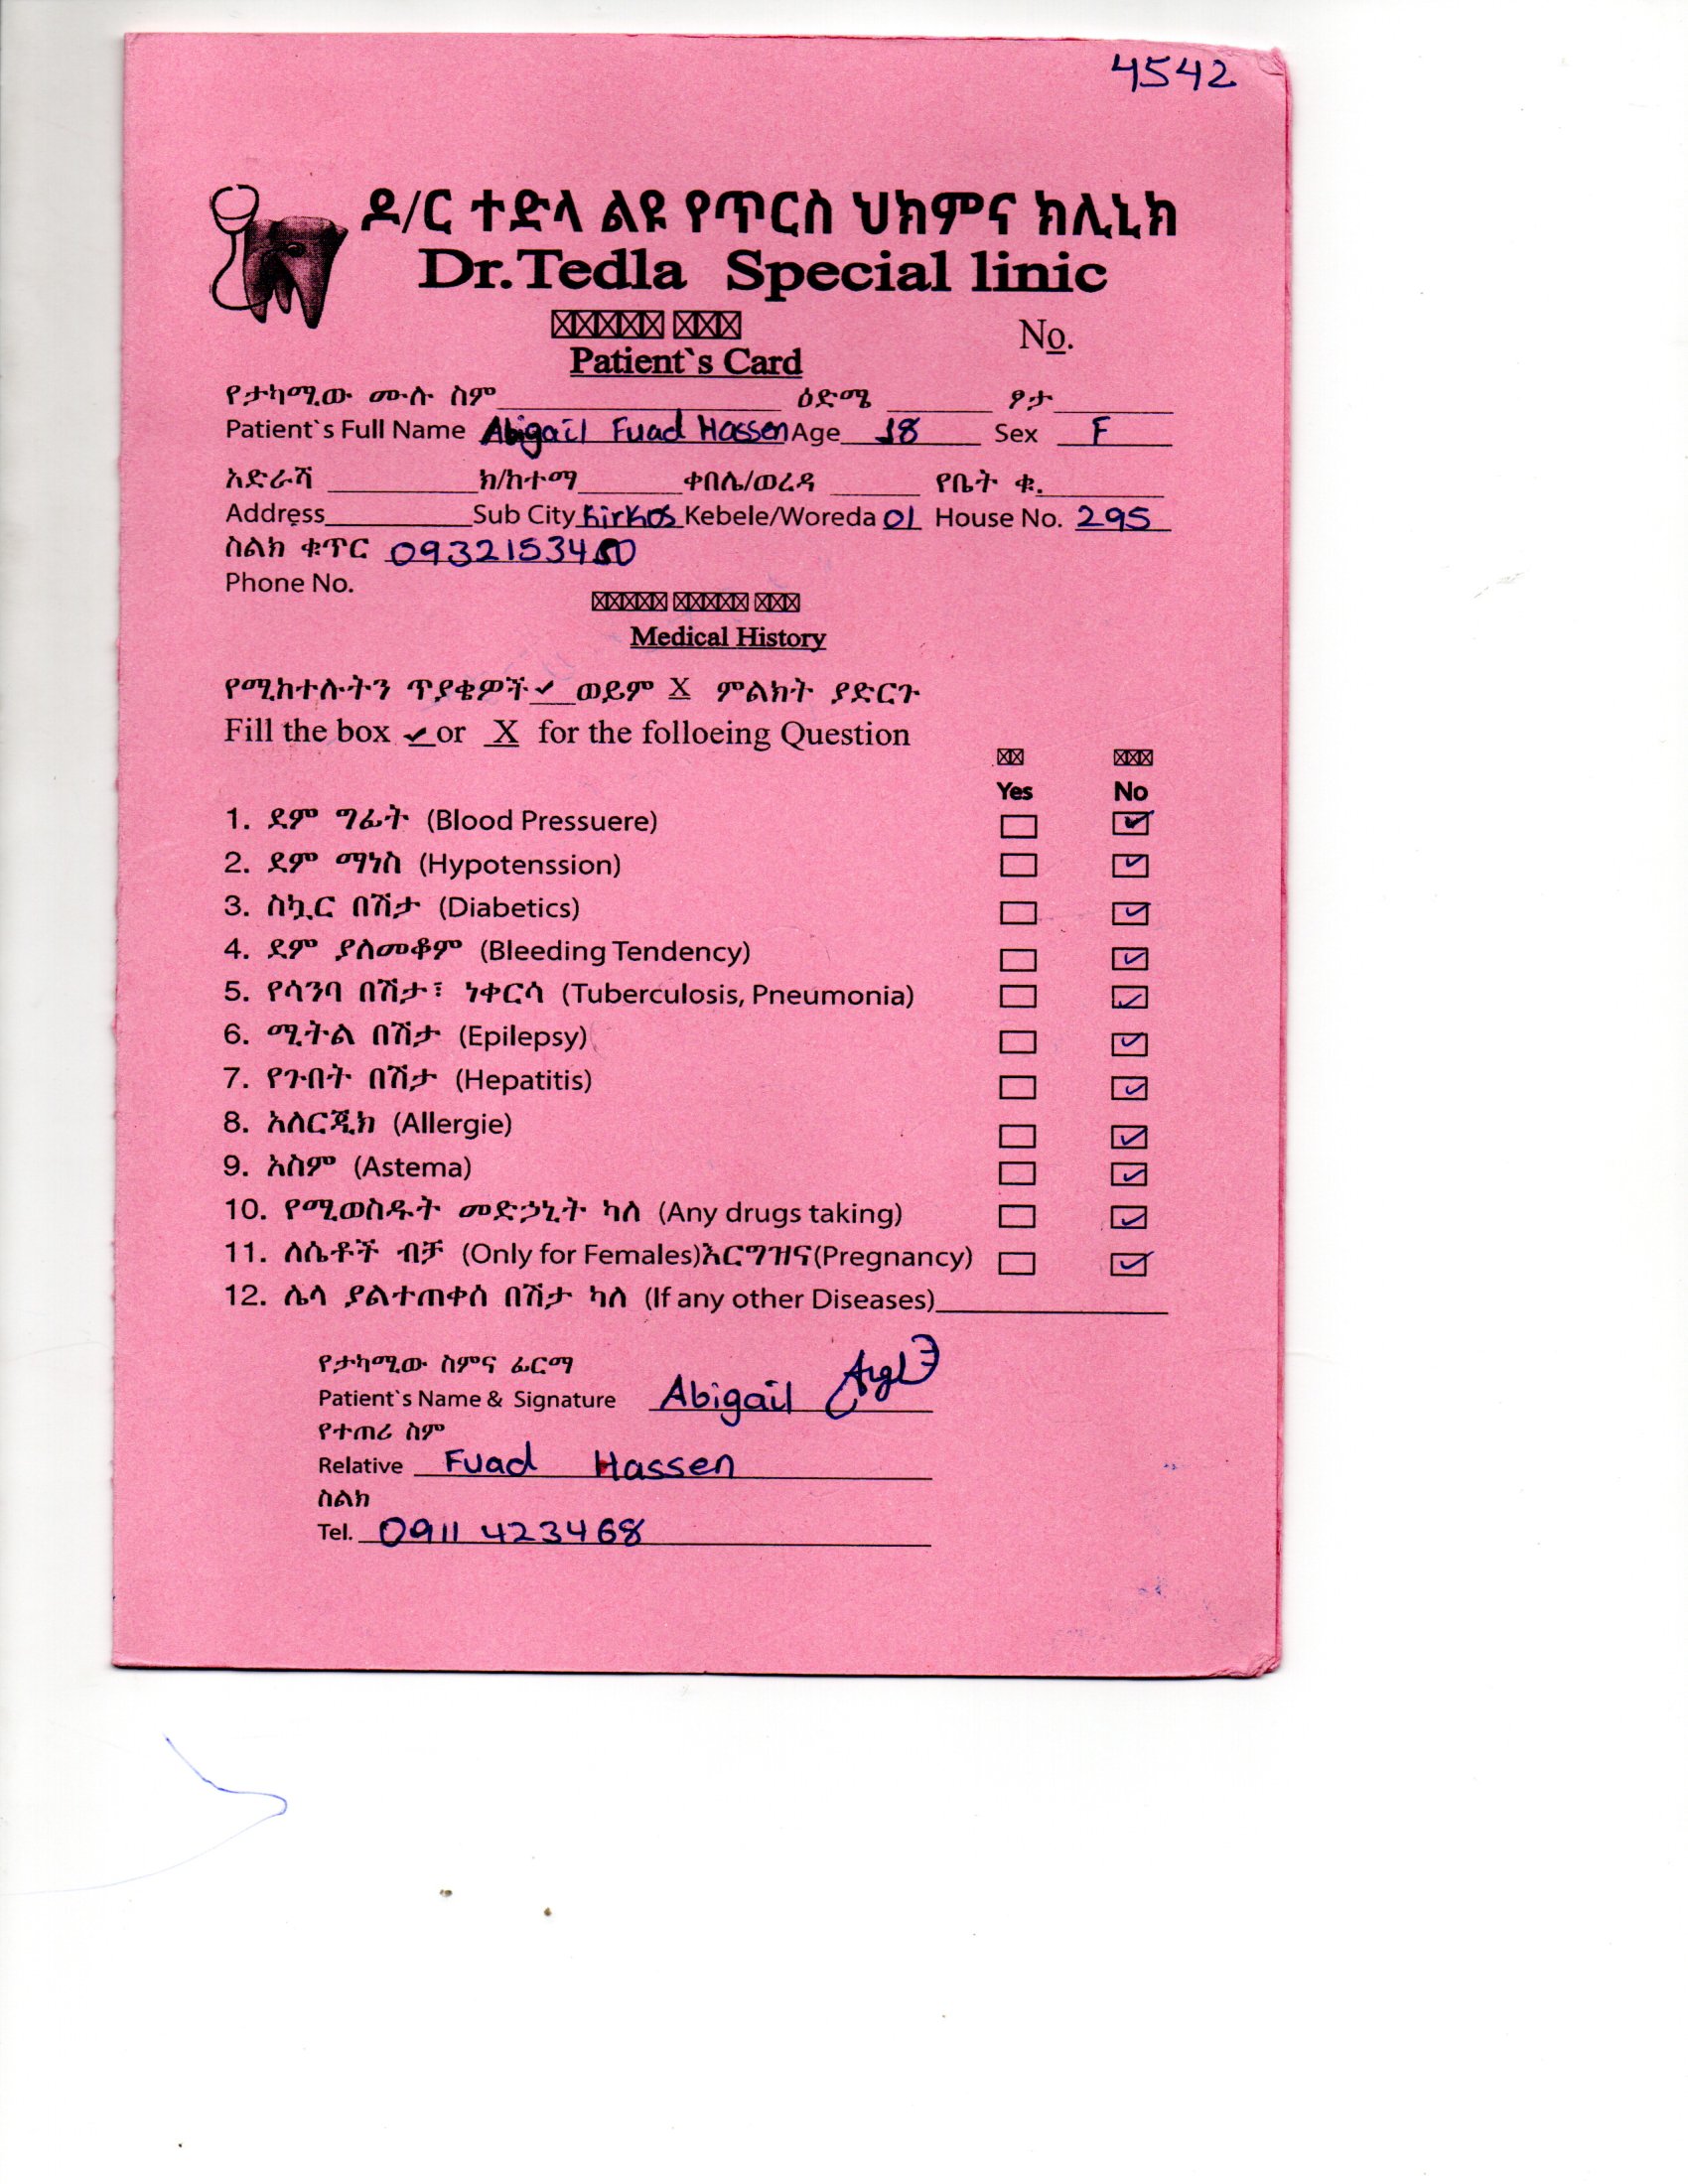 4542
ዶ/ር ተድላ ልዩ የጥርስ ህክምና ክሊኒክ
Dr.Tedla Special linic
No.
Patient`s Card
የታካሚው ሙሉ ስም ዕድሜ ፆታ
Patient`s Full Name Abigail Fuad Hassen Age 18 Sex F
አድራሻ ክ/ከተማ ቀበሌ/ወረዳ የቤት ቁ.
Address Sub City Kirkos Kebele/Woreda 01 House No. 295
ስልክ ቁጥር
Phone No.
Medical History
የሚከተሉትን ጥያቄዎች ✓ ወይም X ምልክት ያድርጉ
Fill the box ✓ or X for the folloeing Question
Yes No
1. ደም ግፊት (Blood Pressuere) ✓
2. ደም ማነስ (Hypotenssion) ✓
3. ስኳር በሽታ (Diabetics) ✓
4. ደም ያለመቆም (Bleeding Tendency) ✓
5. የሳንባ በሽታ፣ ነቀርሳ (Tuberculosis, Pneumonia) ✓
6. ሚትል በሽታ (Epilepsy) ✓
7. የጉበት በሽታ (Hepatitis) ✓
8. አለርጂክ (Allergie) ✓
9. አስም (Astema) ✓
10. የሚወስዱት መድኃኒት ካለ (Any drugs taking) ✓
11. ለሴቶች ብቻ (Only for Females)እርግዝና(Pregnancy) ✓
12. ሌላ ያልተጠቀሰ በሽታ ካለ (If any other Diseases)
የታካሚው ስምና ፊርማ
Patient`s Name & Signature Abigail
የተጠሪ ስም
Relative Fuad Hassen
ስልክ
Tel. 0911 423468